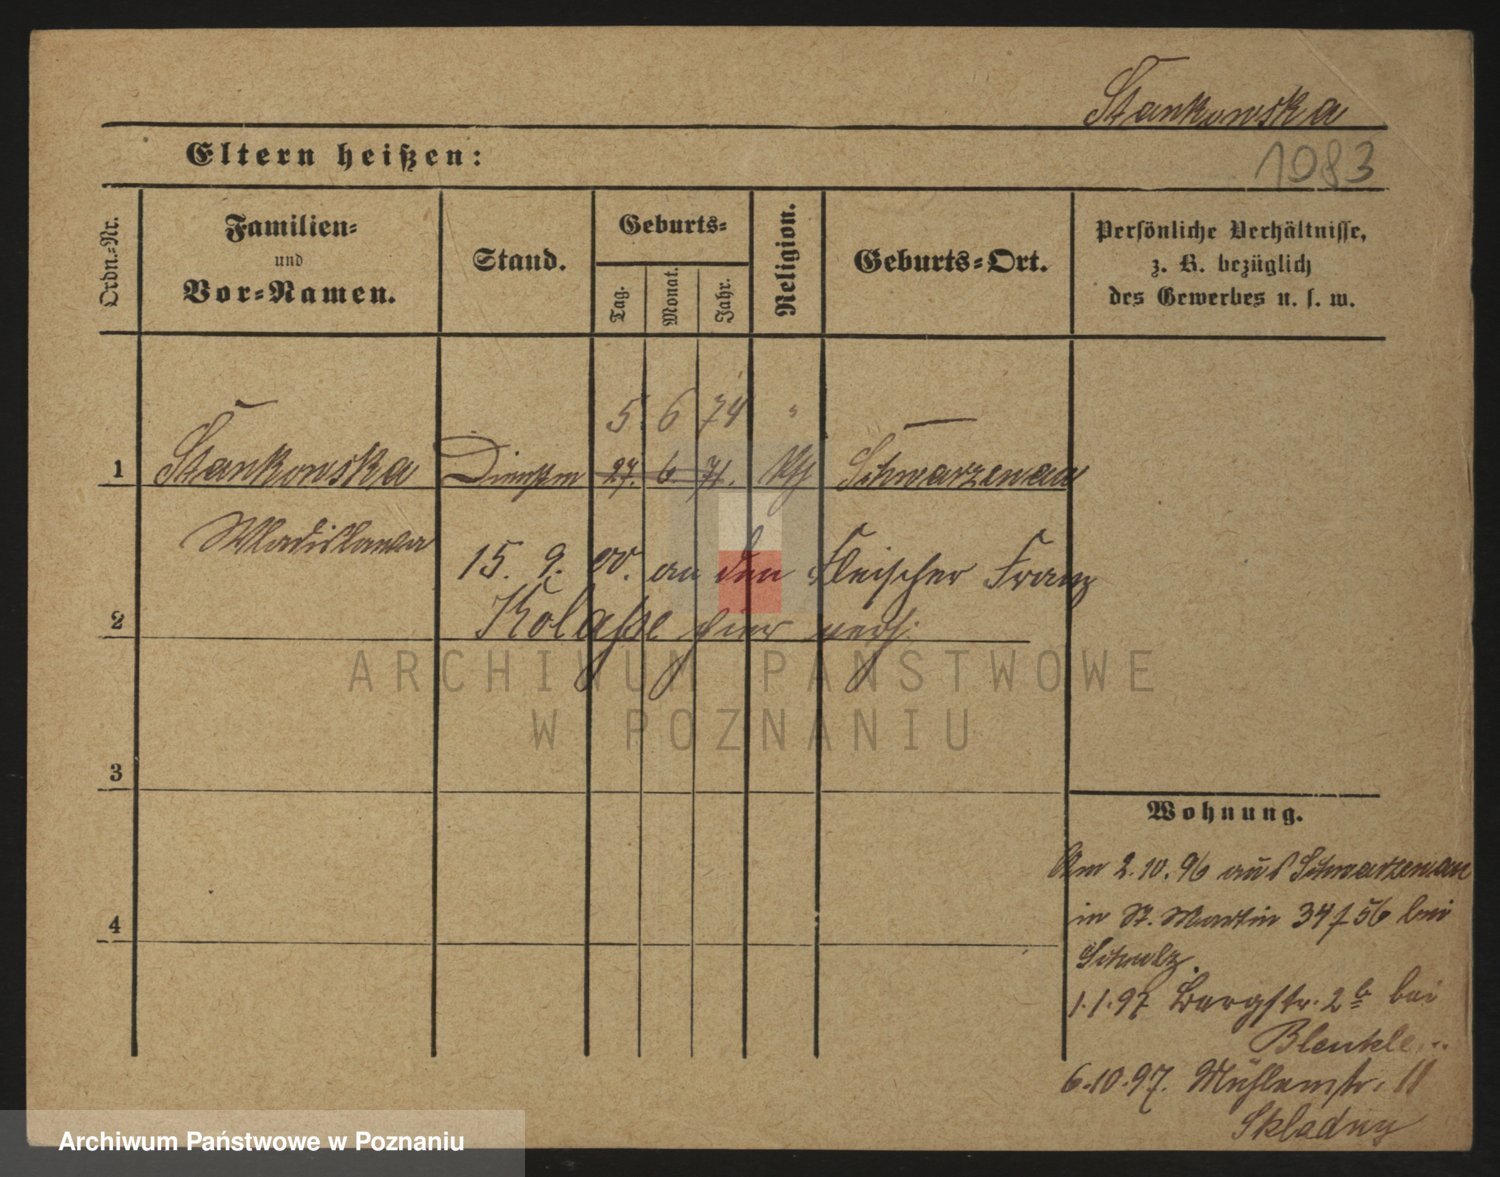 Stankowska
Eltern heißen:
1083
Ordn.-Nr.
Familien-
und
Vor-Namen.
Stand.
Geburts-
Tag.
Monat.
Jahr.
Religion.
Geburts-Ort.
Persönliche Verhältnisse,
z. B. bezüglich
des Gewerbes u. s. w.
5. 6 74 "
1 Stankowska Dienstm 27. 6 71. Schwarzenau
Wladislawa
15. 9. 00. an den Fleischer Franz
2 Kolasse hier verh.
ARCHIWUM PAŃSTWOWE
W POZNANIU
3
Wohnung.
Am 2.10.96 aus Schwarzenau
4 in St. Martin 34 / 56 bei
Schulz.
1.1.97 Bergstr. 2b bei
6.10.97. Mühlenstr. 11
Skladny
Archiwum Państwowe w Poznaniu